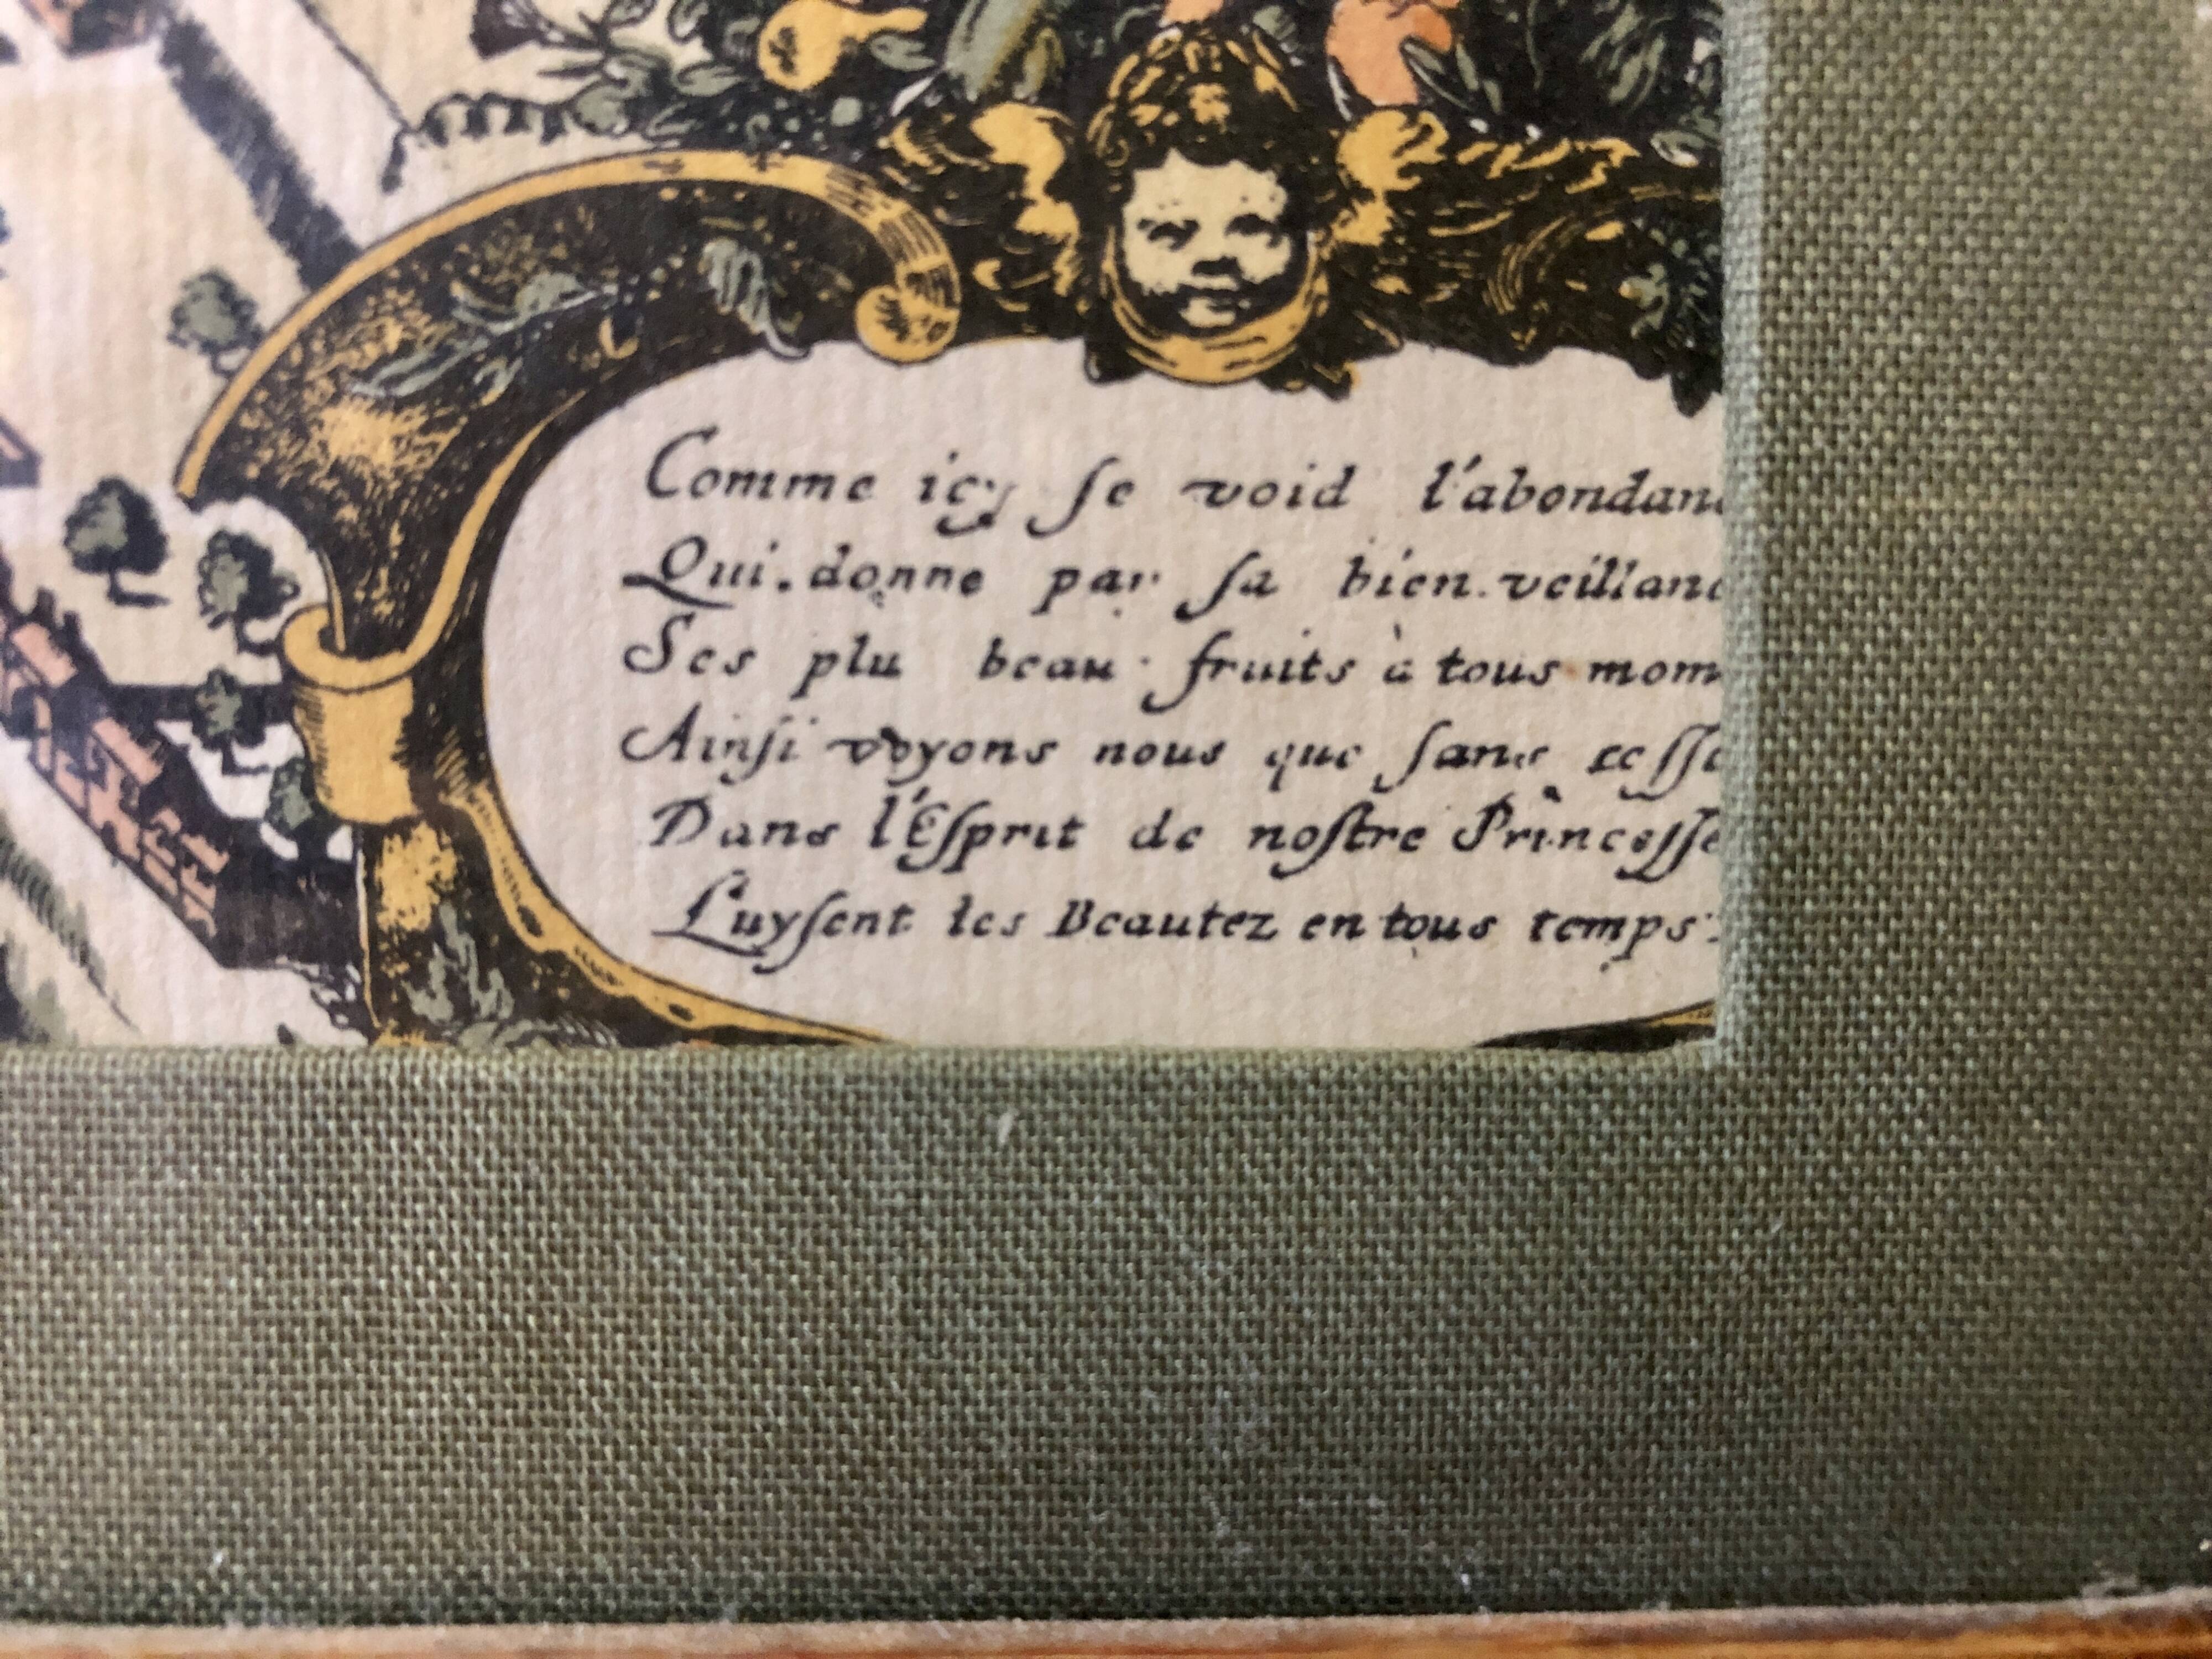 Comme icy ſe void l'abondanc
Qui.donne par ſa bien.veillanc
Ses plu beau fruits à tous mom
Ainſi voyons nous que ſans ceſſe
Dans l'Eſprit de noſtre Princeſſe
Luyſent les Beautez en tous temps: